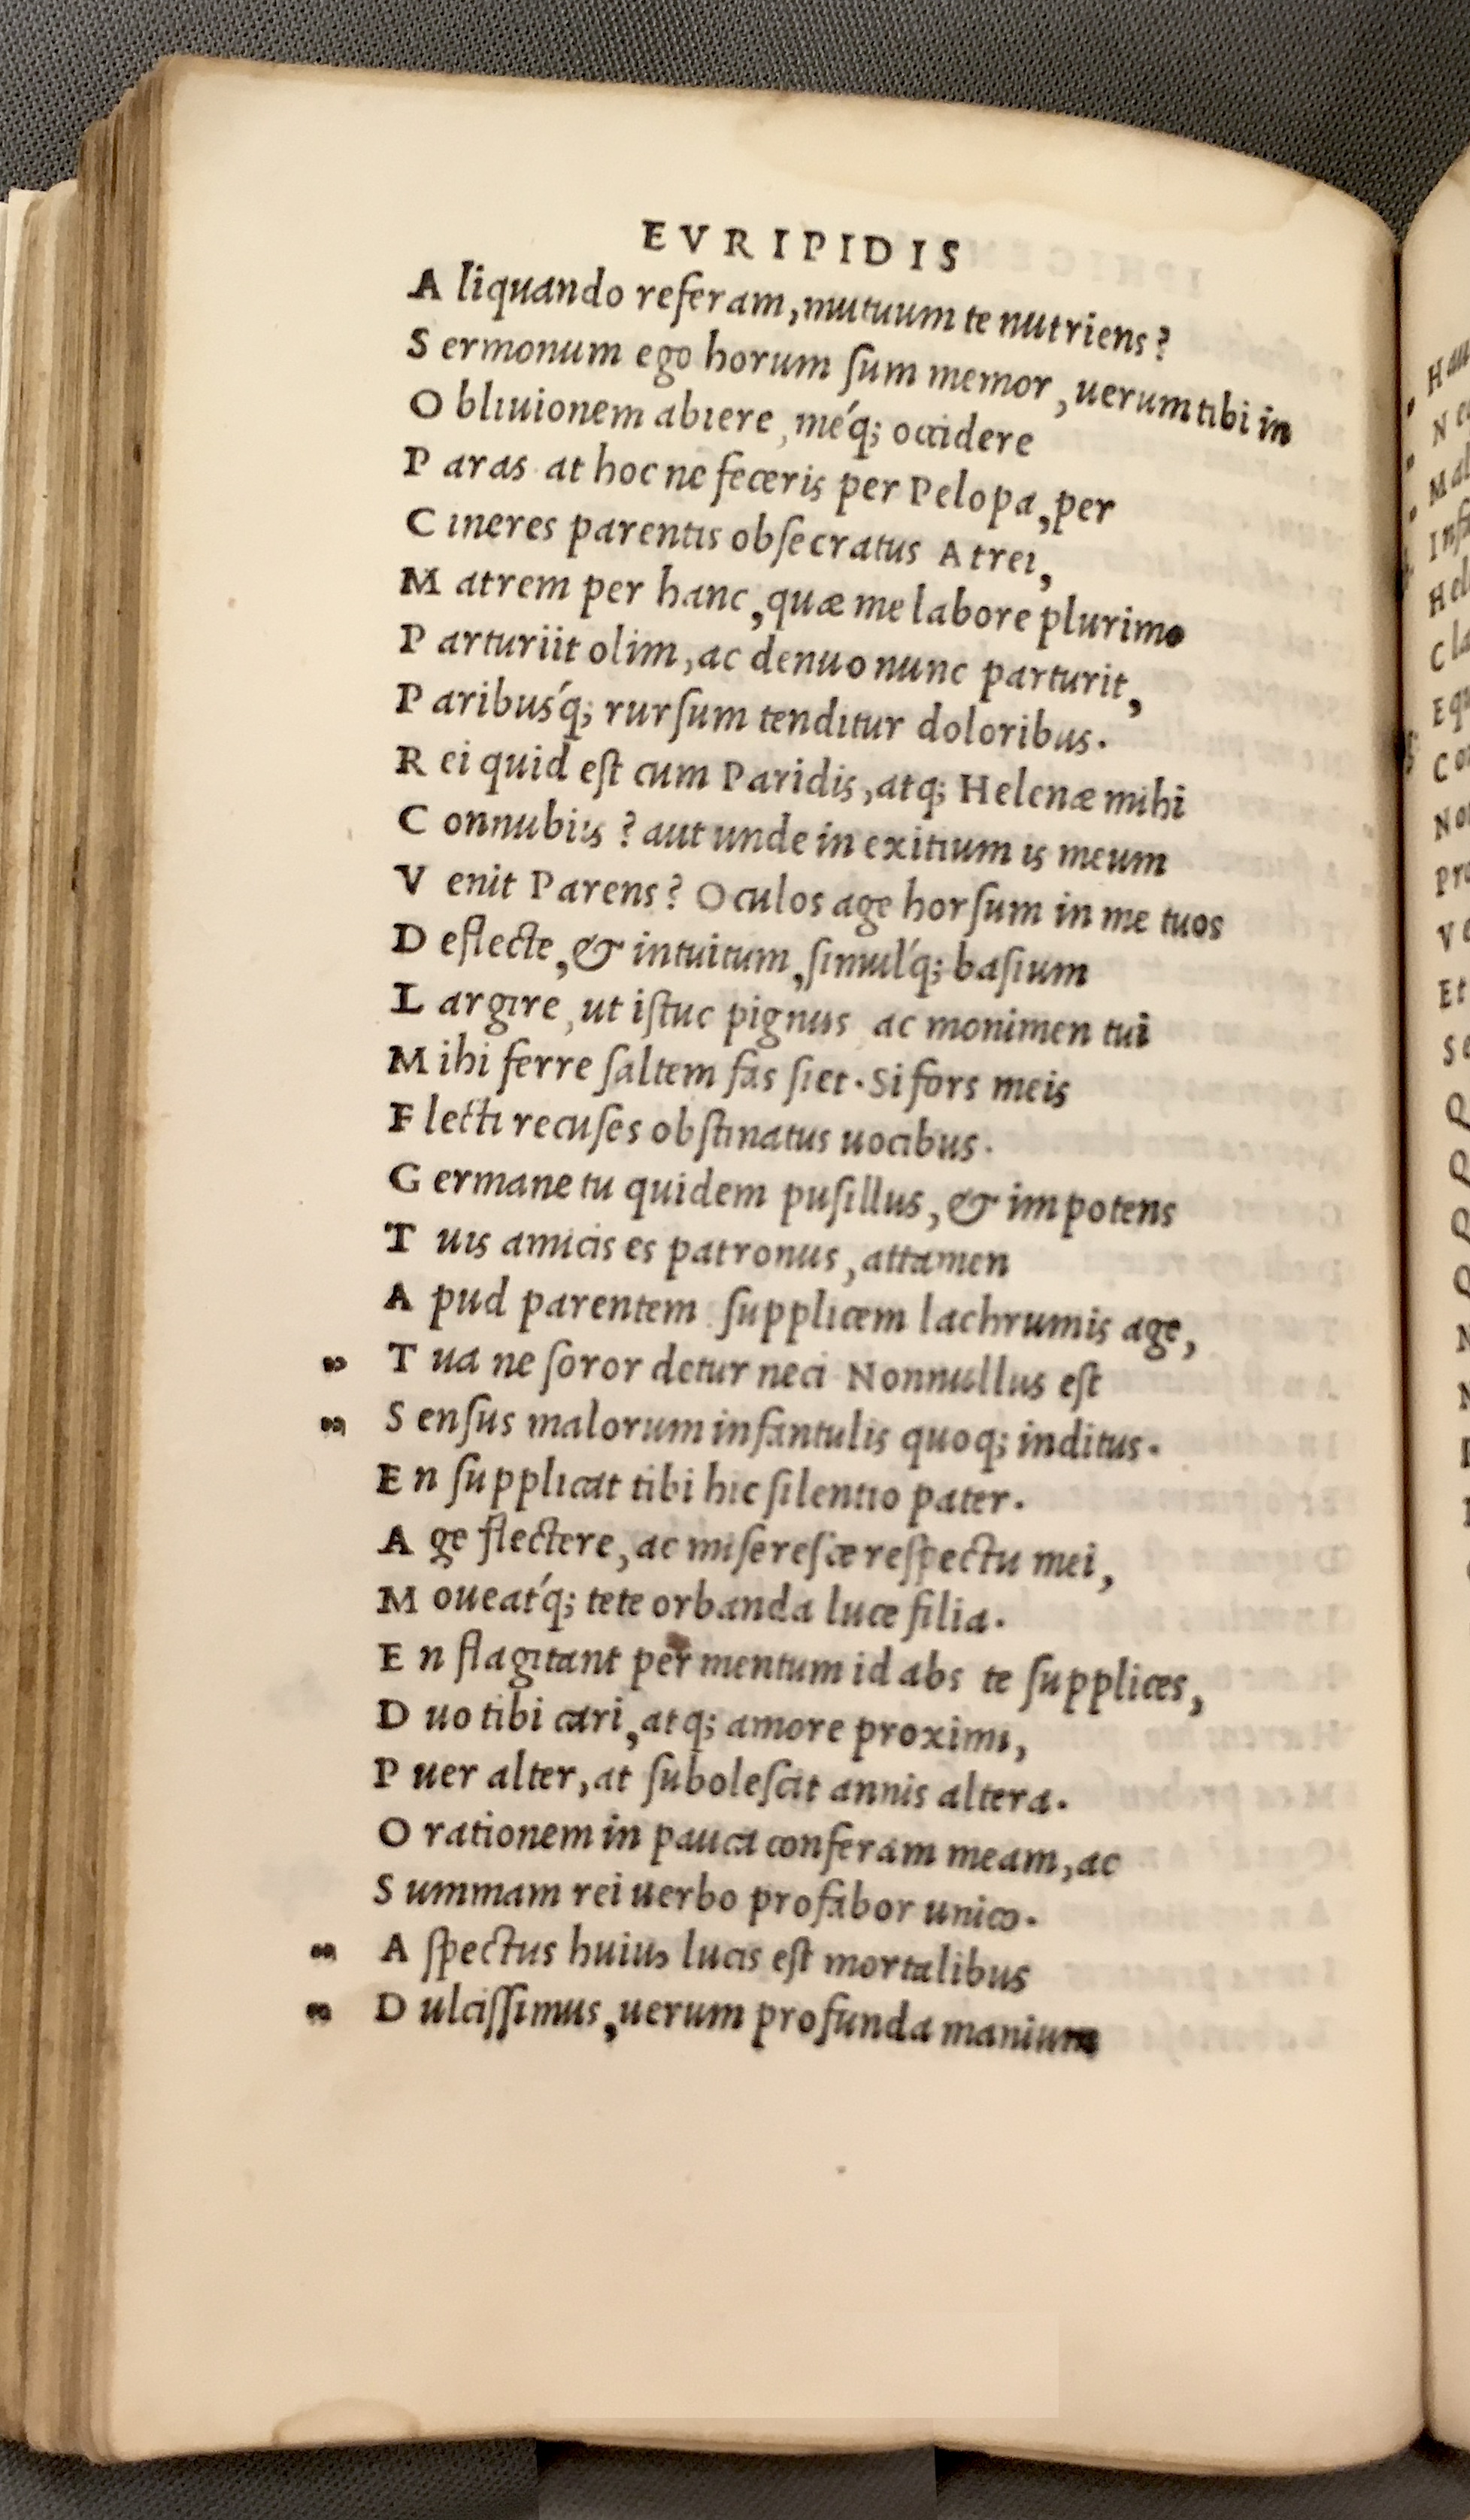 EVRIPIDIS
A liquando referam, mutuum te nutriens?
S ermonum ego horum ſum memor, uerum tibi in
O bliuionem abiere, méq; occidere
P aras at hoc ne feceris per Pelopa, per
C ineres parentis obſecratus Atrei,
M atrem per hanc, quæ me labore plurimo
P arturiit olim, ac denuo nunc parturit,
P aribusq́; rurſum tenditur doloribus.
R ei quid eſt cum Paridis, atq; Helenæ mihi
C onnubiis? aut unde in exitium is meum
V enit Parens? Oculos age horſum in me tuos
D eflecte, & intuitum, ſimulq́; baſium
L argire, ut iſtuc pignus ac monimen tui
M ihi ferre ſaltem fas ſiet. Si fors meis
F lecti recuſes obſtinatus uocibus.
G ermane tu quidem puſillus, & impotens
T uis amicis es patronus, attamen
A pud parentem ſupplicem lachrumis age,
T ua ne ſoror detur neci Nonnullus eſt
S enſus malorum infantulis quoq; inditus.
E n ſupplicat tibi hic ſilentio pater.
A ge flectere, ac miſereſce reſpectu mei,
M oueatq́; te te orbanda luce filia.
E n flagitant per mentum id abs te ſupplices,
D uo tibi cari, atq; amore proximi,
P uer alter, at ſuboleſcit annis altera.
O rationem in pauca conferam meam, ac
S ummam rei uerbo profabor unico.
A ſpectus huius lucis eſt mortalibus
D ulciſſimus, uerum profunda manium